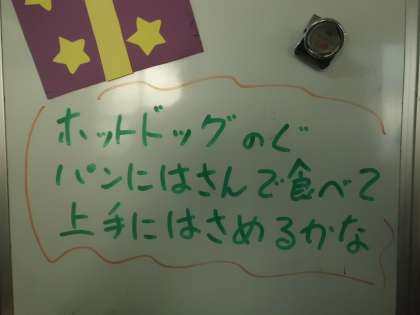 ホットドッグのぐ
パンにはさんで食べて
上手にはさめるかな